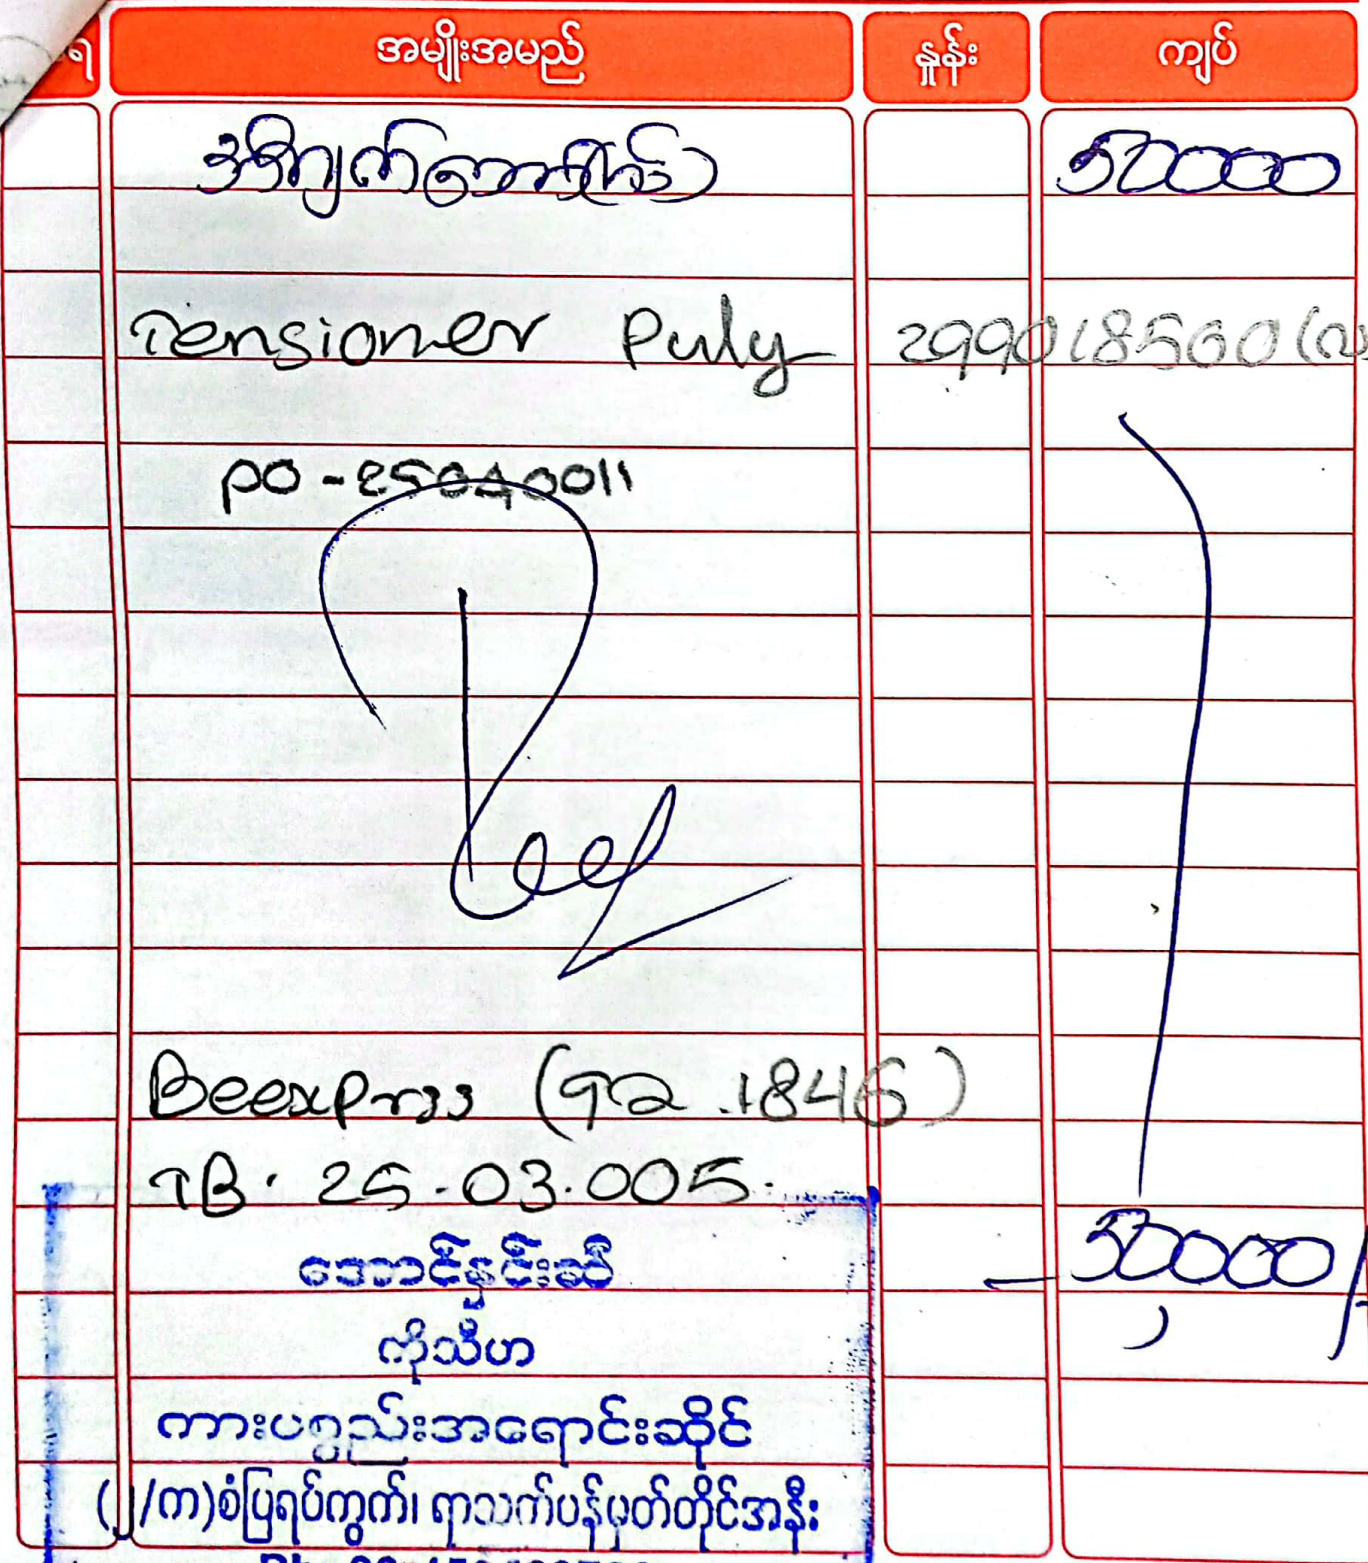 ရ အမျိုးအမည် နှုန်း ကျပ်
50000
Tensioner Puly 299018500
PO-25040011
Beexprss (9Q.1846)
TB. 25.03.005.
50000/
အောင်နှင်းဆီ
ကိုသီဟ
ကားပစ္စည်းအရောင်းဆိုင်
(၂/က)စံပြရပ်ကွက်၊ ရာသက်ပန်မှတ်တိုင်အနီး